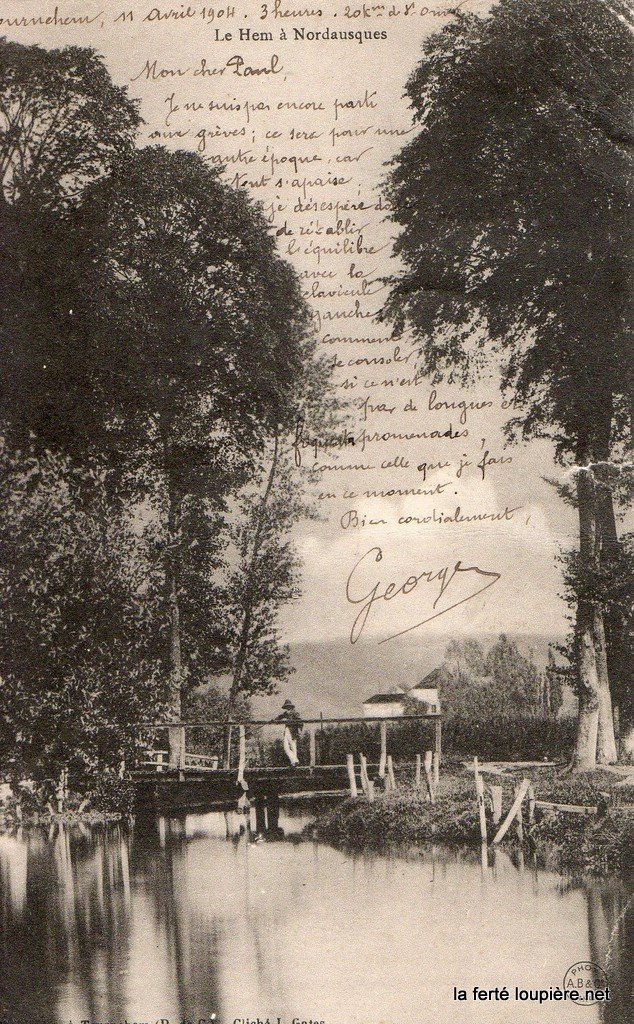 11 Avril 1904. 3 heures. 20 km de St Omer
Le Hem à Nordausques
Mon cher Paul,
Je ne suis pas encore parti
aux grèves ; ce sera pour une
autre époque, car
tout s'apaise ;
je désespère de
de rétablir
l'équilibre
avec la
clavicule
gauche
comment
se consoler
si ce n'est
par de longues et
promenades,
comme celle que je fais
en ce moment.
Bien cordialement,
George
PHOT
A.B & C
la ferté loupière.net
Cliché J. Gates